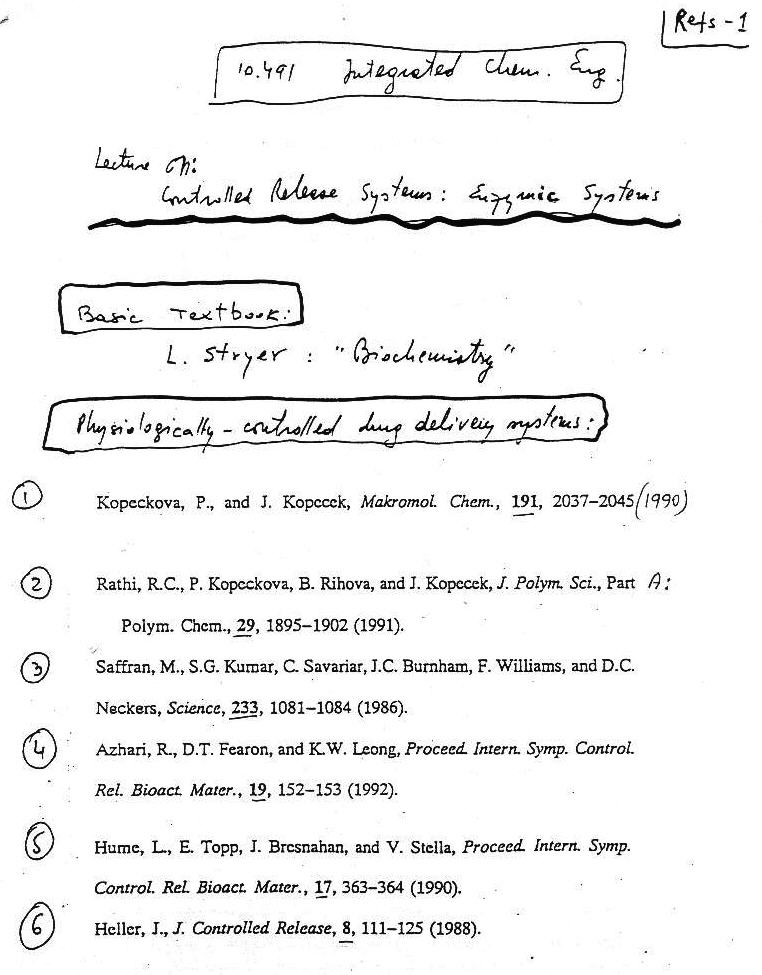 Refs - 1
10.491 Integrated Chem. Eng.
Lecture on:
Controlled Release Systems: Enzymic Systems
Basic Textbook:
L. Stryer : "Biochemistry"
Physiologically-controlled drug delivery systems:
1 Kopeckova, P., and J. Kopecek, Makromol. Chem., 191, 2037-2045 (1990)
2 Rathi, R.C., P. Kopeckova, B. Rihova, and J. Kopecek, J. Polym. Sci., Part A:
Polym. Chem., 29, 1895-1902 (1991).
3 Saffran, M., S.G. Kumar, C. Savariar, J.C. Burnham, F. Williams, and D.C.
Neckers, Science, 233, 1081-1084 (1986).
4 Azhari, R., D.T. Fearon, and K.W. Leong, Proceed. Intern. Symp. Control.
Rel. Bioact. Mater., 19, 152-153 (1992).
5 Hume, L., E. Topp, J. Bresnahan, and V. Stella, Proceed. Intern. Symp.
Control. Rel. Bioact. Mater., 17, 363-364 (1990).
6 Heller, J., J. Controlled Release, 8, 111-125 (1988).